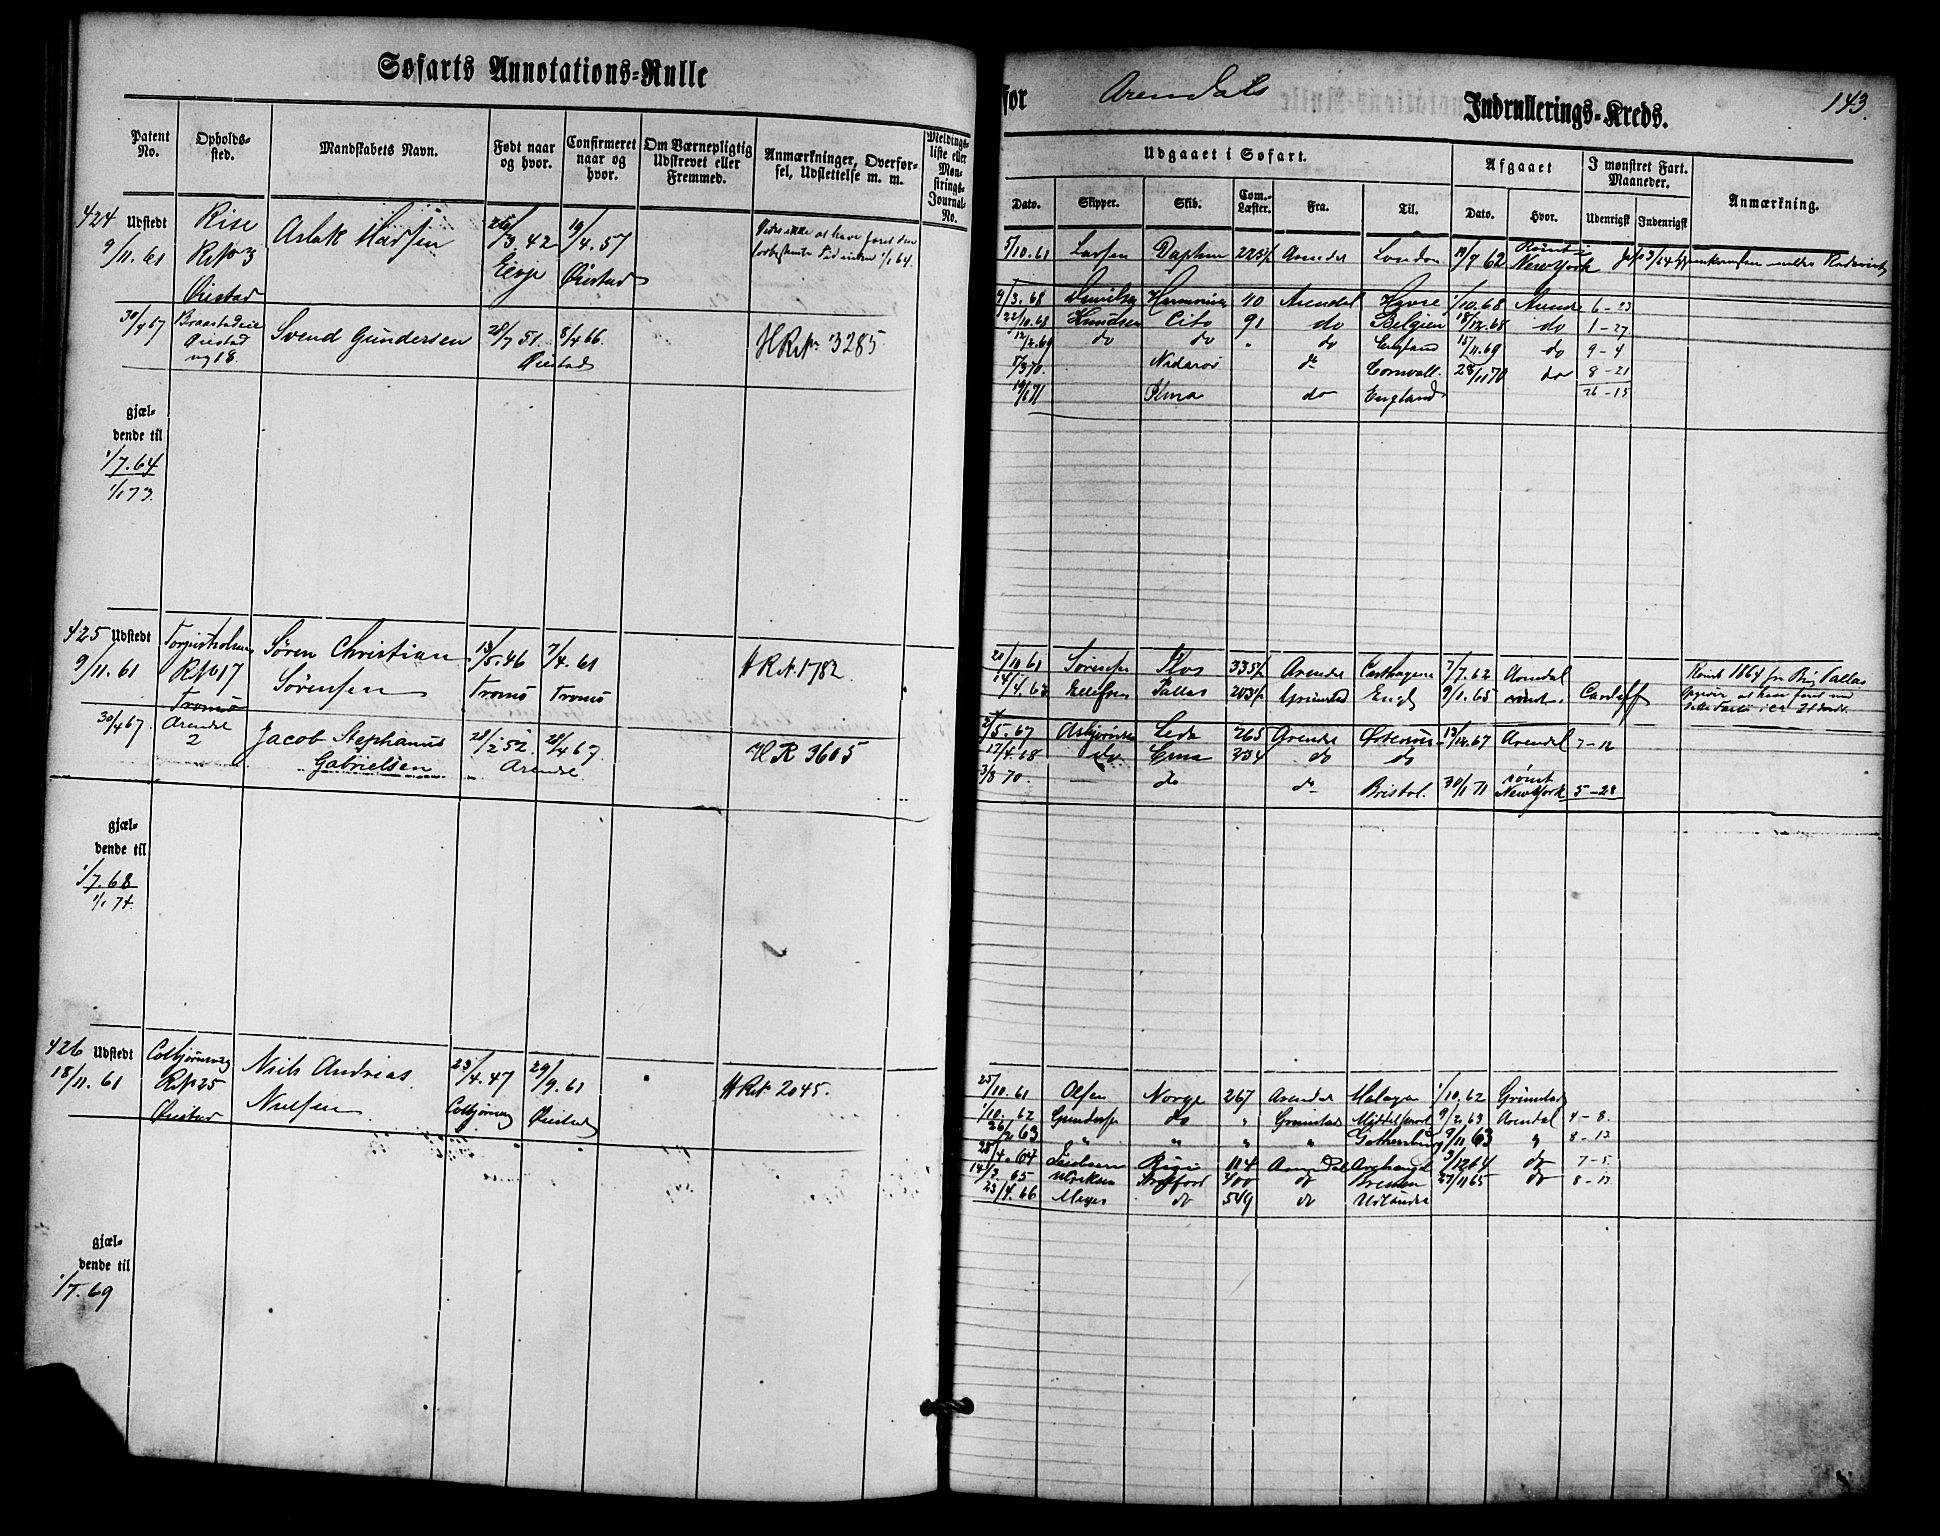 Søfarts Annotations=Rulle
Patent No.
Opholds-sted.
Mandskabets Navn.
Født naar og hvor.
Confirmeret naar og hvor.
Om Værnepligtig Udskrevet eller Fremmed.
Anmærkninger, Overfør-sel, Udslettelse m. m.
Meldings-liste eller Møn-strings-Journal-No.
424 Udstedt
9/11.61
Rise
RNo 3
Øiestad
Aslak Madsen
26/3.42
Eivje
19/4.57
Øiestad
30/4 67
Øiestad
no 18.
Svend Gundersen
28/7 51.
8/4 66.
Øiestad
HRNo 3285
gjæl-
dende til
1/7.64
1/1 73.
425 Udstedt
9/11.61
RNo 17
Tromø
Søren Christian
Sørensen
13/5.46
Tromø
7/4.61
Tromø
HRNo 1782.
30/4 67.
Arendal
2
Jacob Stephanus
Gabrielsen
28/2 52.
28/4 67
Arendal
HR 3605
gjæl-
dende til
1/7.68
1/1 74.
426 Udstedt
18/11.61
Colbjørnsvig
RNo 25
Øiestad
Niels Andreas
Nielsen
23/4.47
Colbjørnsvig
29/9.61
Øiestad
HRNo 2045.
gjæl-
dende til
1/7.69
for Arendals Indrullerings-Kreds. 143.
Udgaaet i Søfart.
Afgaaet
I mønstret Fart. Maaneder.
Anmærkning.
Dato. Skipper. Skib. Com.-Læster. Fra. Til. Dato. Hvor. Udenrigsk Indenrigsk
5/10.61 Larsen Daphne 223½ Arendal London 19/7 62 Rømt i New York
9/3.68 Danielsen Harmonien 40 Arendal Havre 1/10.68 Arendal 6-23
22/10.68 Knudsen Cito 91 do Belgien 18/12.68 do 1-27
12/2.69 do do " do England 15/11.69 do 9-4
5/3 70. Nidaros do Cornwall. 28/11 70 do 8-21
19/1 71 Alma do England 26-15
20/10.61 Sørensen 335½ Arendal Carthagena 7/7.62 Arendal
14/4.63 Ellefsen Pallas 203½ Grimstad Engl 9/1.65 rømt. Cardiff
Rømt 1864 fra Brig Pallas
2/5.67 Asbjørnsen Leda 265 Arendal Østersøen 13/12.67 Arendal 7-12
17/4.68 do 234 do do
3/8 70. do do Bristol. 30/1 71 rømt New York 5-28
25/10.61 Olsen Norge 267 Arendal Malaga 1/10.62 Grimstad
1/10.62 Gundersen do " Grimstad 9/2.63 Arendal 4-8.
26/2 63 " " " " Gothenburg 9/11 63 " 8-13
28/4.64 Jacobsen 114 Arendal Archangel 3/12 64 do 7-5
14/3.65 Ulriksen 400 do Bremen 27/11 65 do 8-13
23/4.66 Meyer do 549 do Udlandet